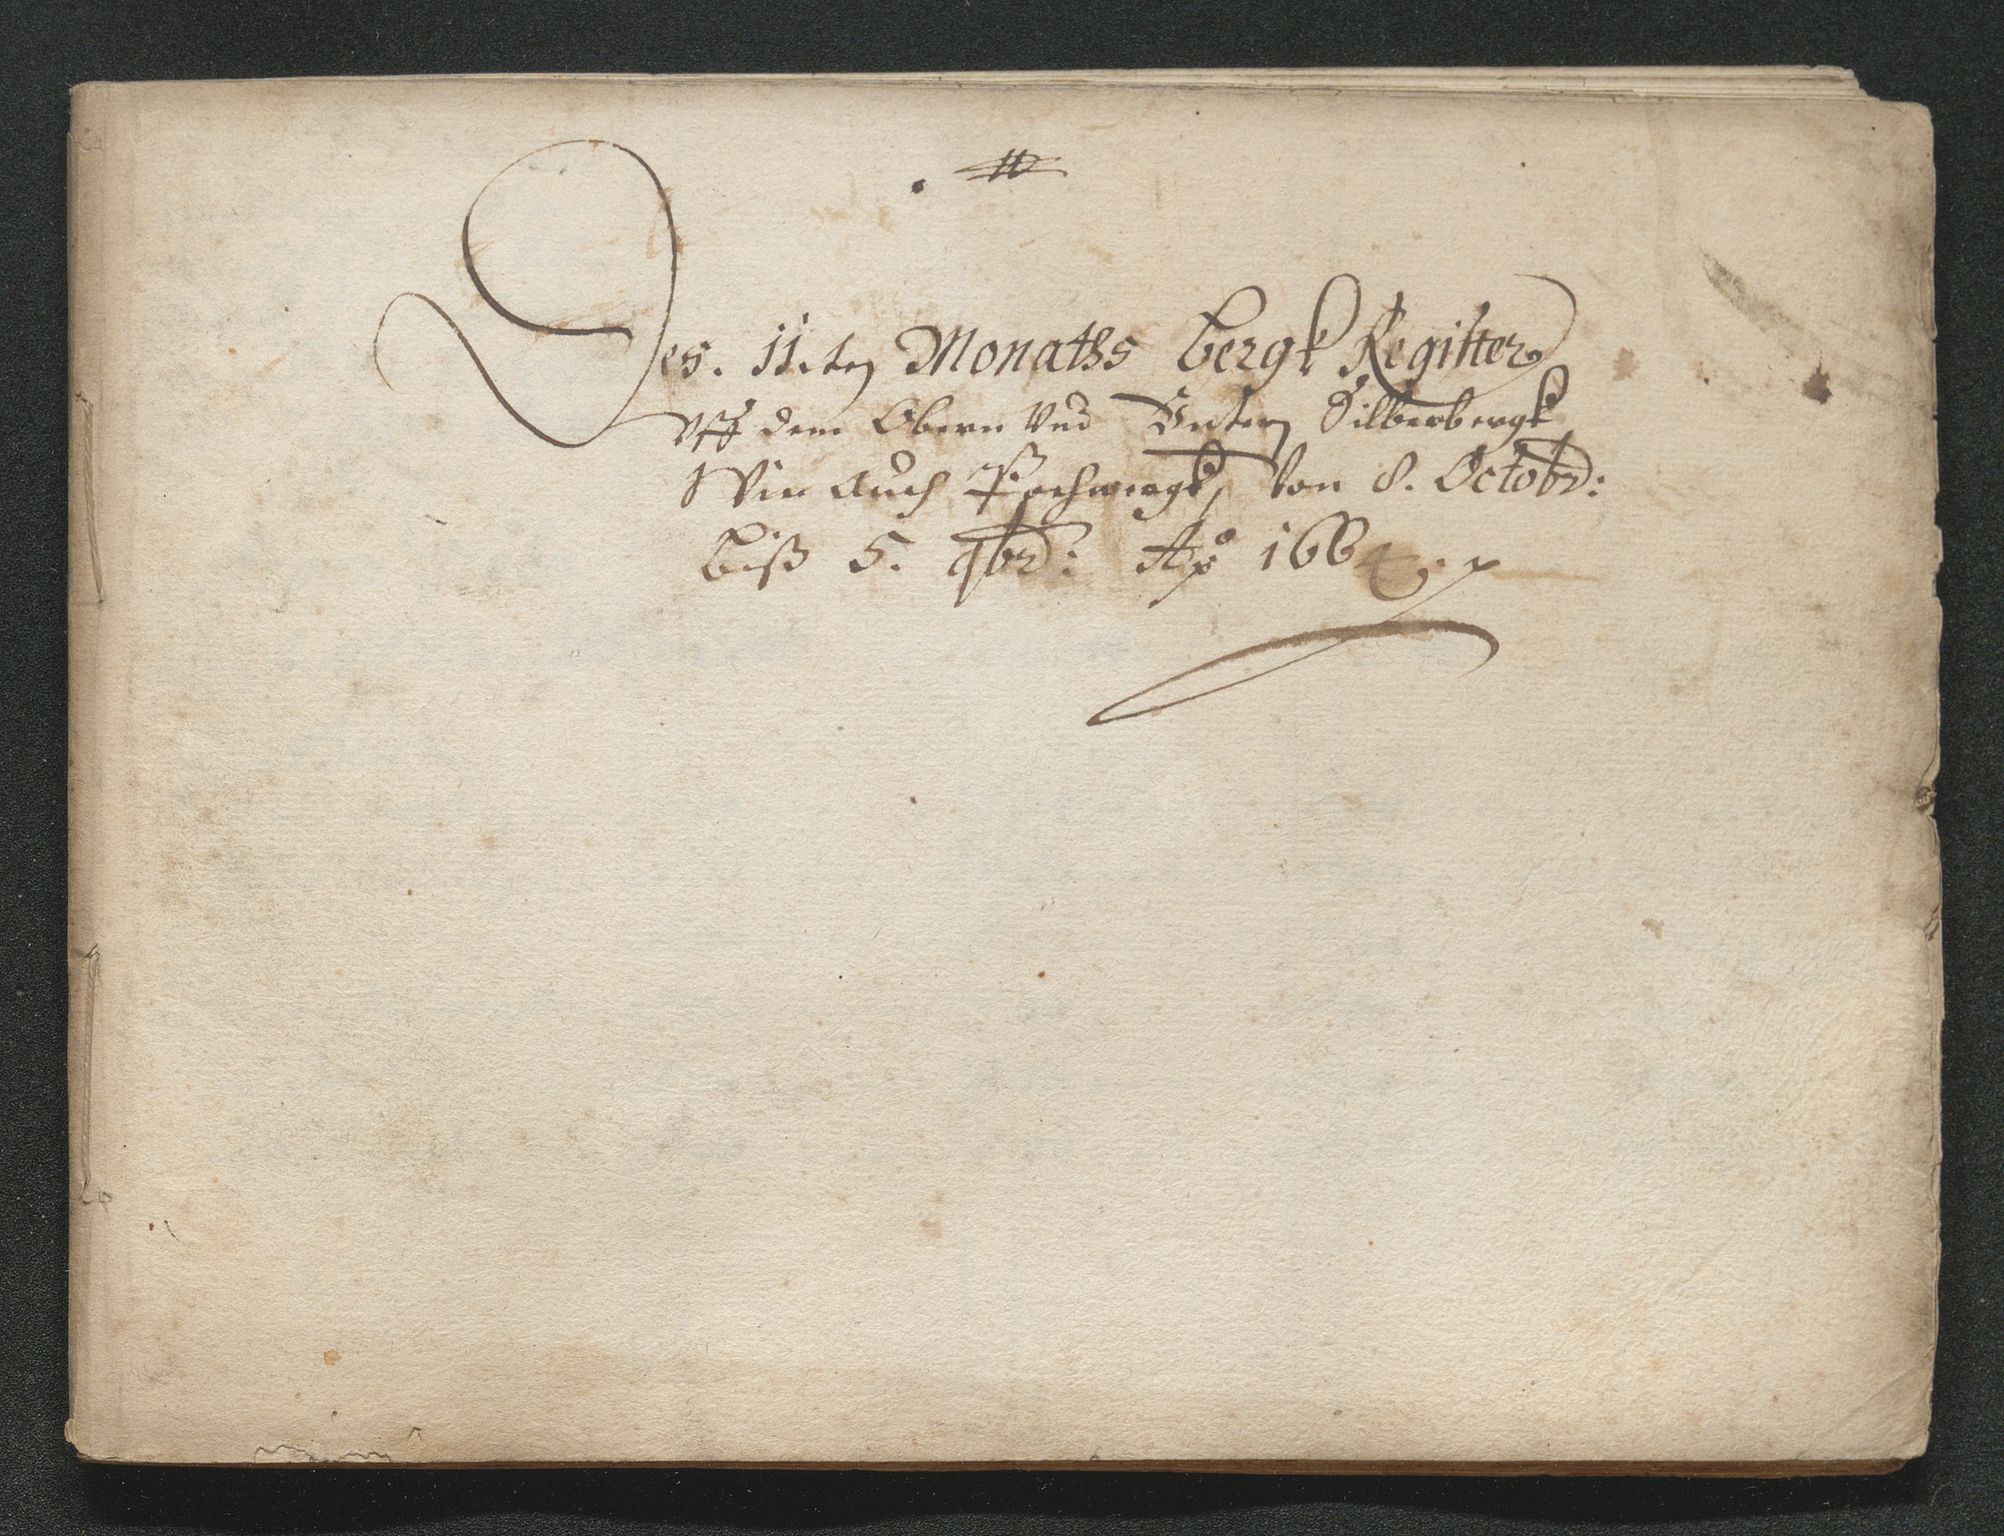 11
Des. 11.ten Monaths Bergk Register
Vff dem Obern Vnd Vntern Silberbergk
Wie auch Pochwergk, Von 8. Octobr:
biß 5. 9br: Aō 166